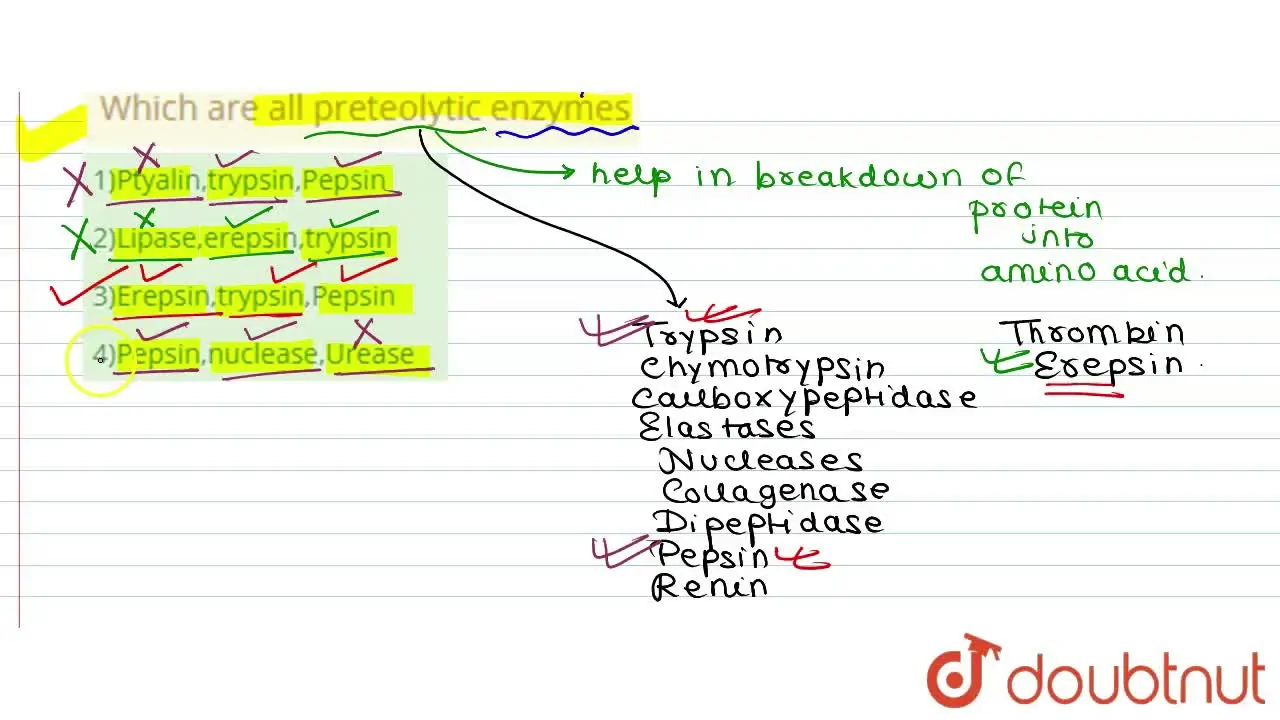 Which are all preteolytic enzymes
1)Ptyalin,trypsin,Pepsin
2)Lipase,erepsin,trypsin
3)Erepsin,trypsin,Pepsin
4)Pepsin,nuclease,Urease
help in breakdown of
protein
into
amino acid.
Trypsin
Chymotrypsin
Carboxypeptidase
Elastases
Nucleases
Collagenase
Dipeptidase
Pepsin
Renin
Thrombin
Erepsin
doubtnut